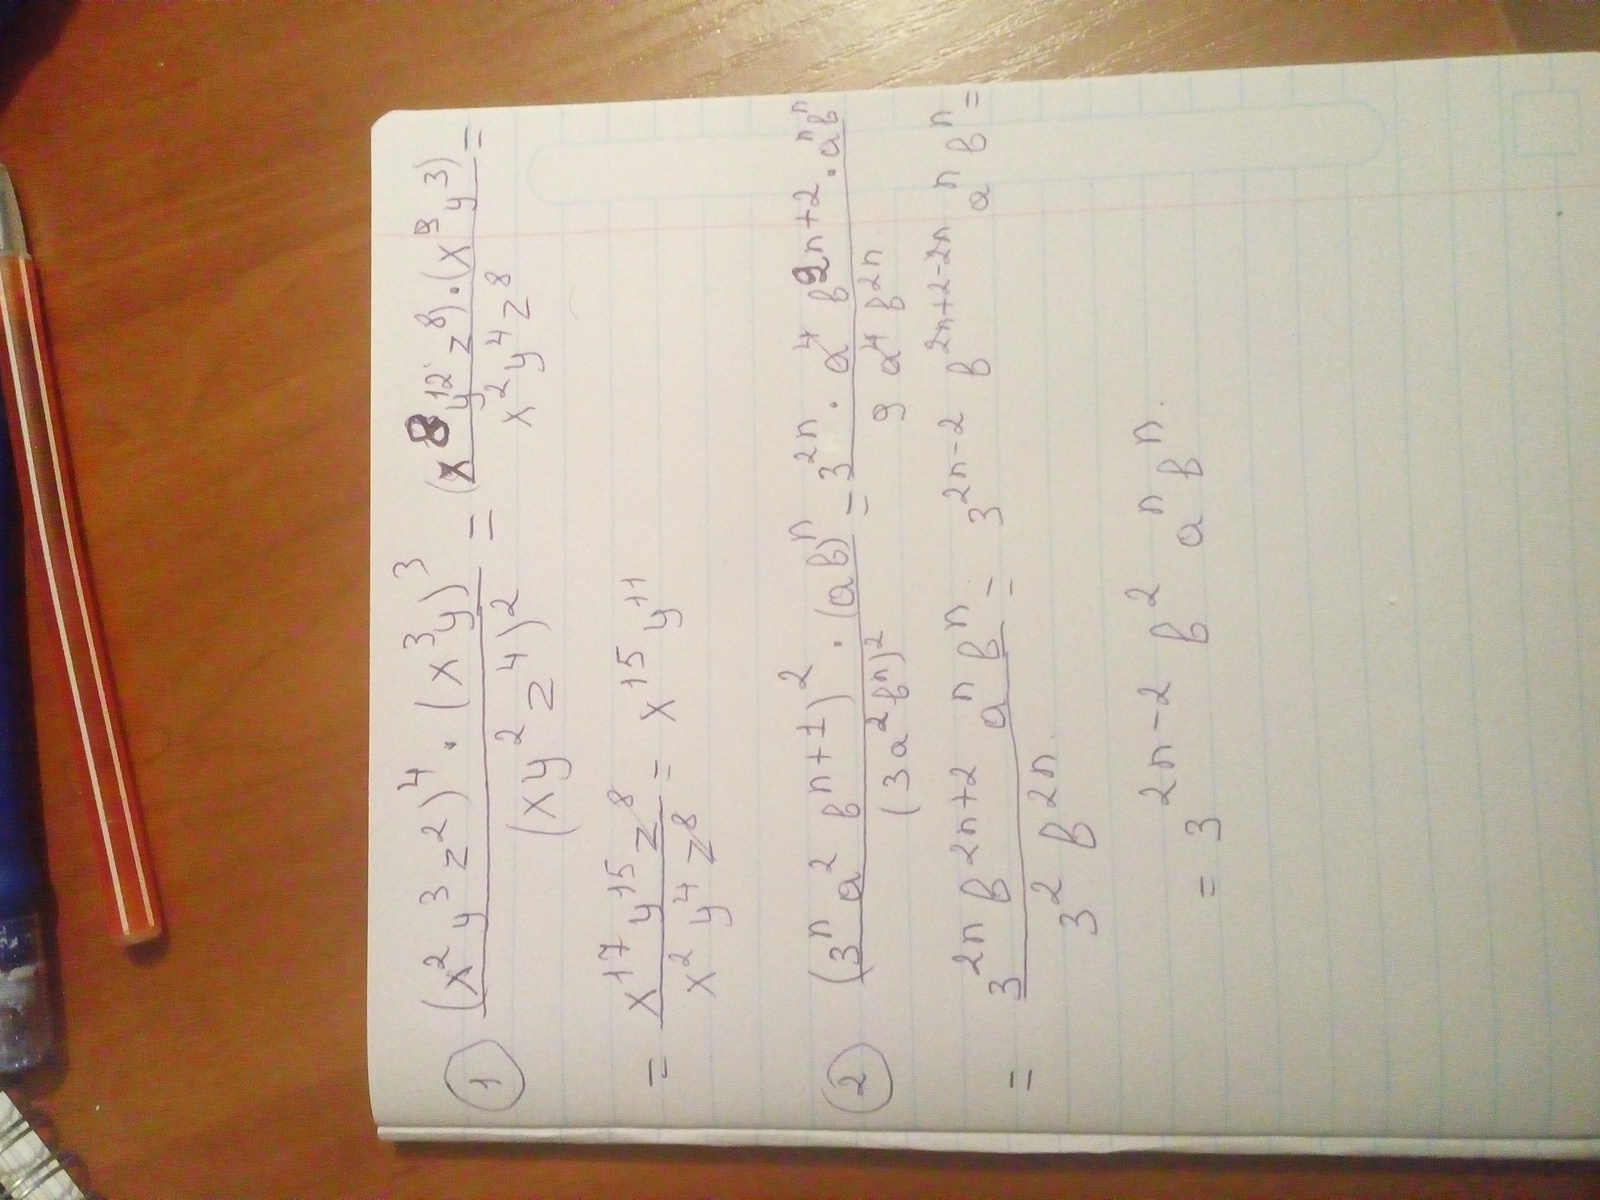 ① (x²y³z²)⁴ · (x³y)³ / (xy²z⁴)² = (x⁸y¹²z⁸) · (x⁹y³) / x²y⁴z⁸ =
= x¹⁷y¹⁵z⁸ / x²y⁴z⁸ = x¹⁵y¹¹
② (3ⁿa²вⁿ⁺¹)² · (aв)ⁿ / (3a²вⁿ)² = 3²ⁿ · a⁴в²ⁿ⁺² · aⁿвⁿ / 9a⁴в²ⁿ
= 3²ⁿв²ⁿ⁺²aⁿвⁿ / 3²в²ⁿ = 3²ⁿ⁻²в²ⁿ⁺²⁻²ⁿaⁿвⁿ =
= 3²ⁿ⁻²в²aⁿвⁿ.